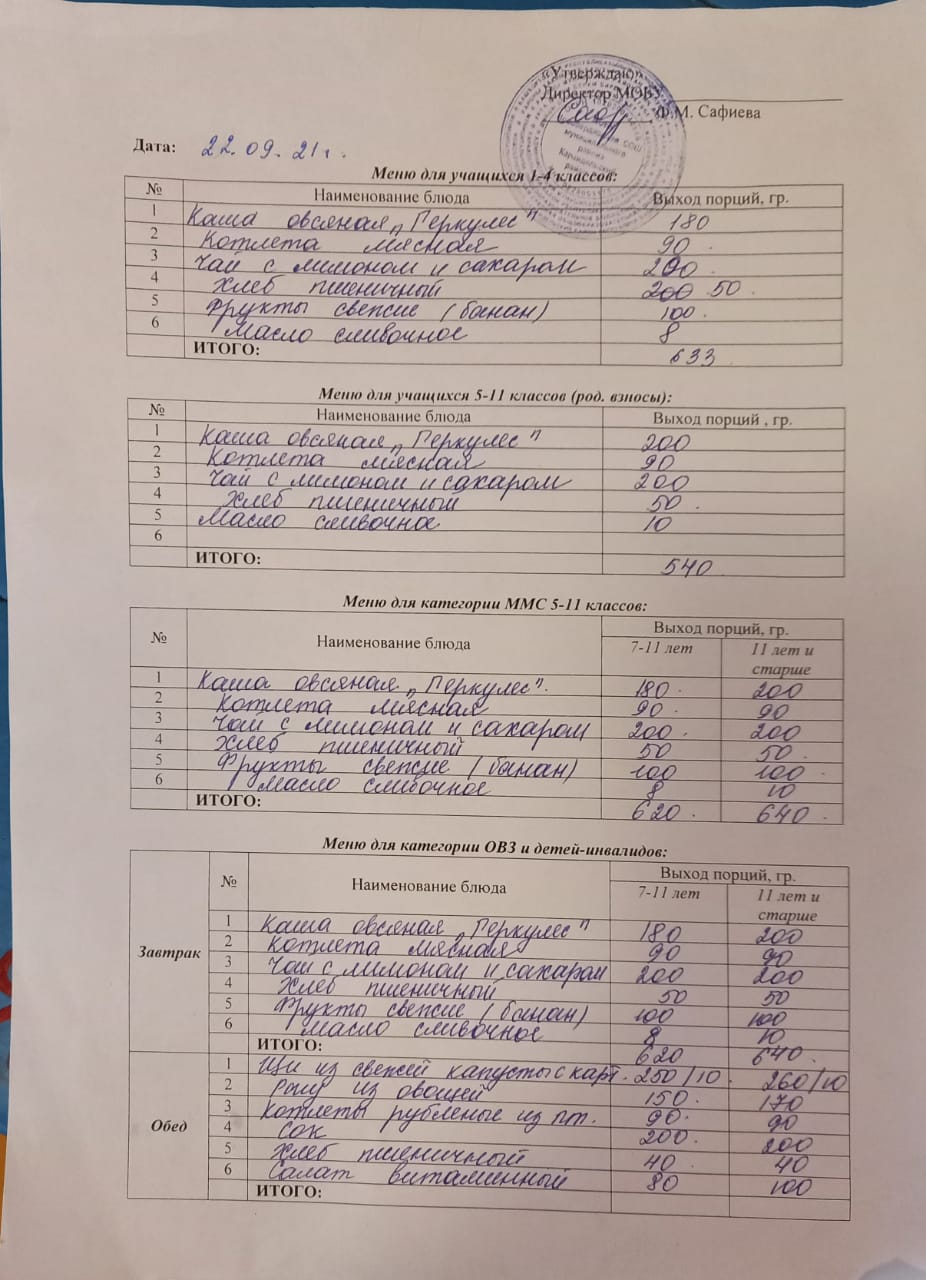 «Утверждаю»
Директор МОБУ
Ф.М. Сафиева
Дата: 22.09.21г.
Меню для учащихся 1-4 классов:
№ Наименование блюда Выход порций, гр.
1 Каша овсяная „Геркулес" 180
2 Котлета мясная 90
3 Чай с лимоном и сахаром 200
4 Хлеб пшеничный 200 50
5 Фрукты свежие (банан) 100
6 Масло сливочное 8
ИТОГО: 633
Меню для учащихся 5-11 классов (род. взносы):
№ Наименование блюда Выход порций , гр.
1 Каша овсяная „Геркулес" 200
2 Котлета мясная 90
3 Чай с лимоном и сахаром 200
4 Хлеб пшеничный 50
5 Масло сливочное 10
6
ИТОГО: 540
Меню для категории ММС 5-11 классов:
№ Наименование блюда Выход порций, гр.
7-11 лет 11 лет и
старше
1 Каша овсяная „Геркулес". 180 200
2 Котлета мясная 90 90
3 Чай с лимоном и сахаром 200 200
4 Хлеб пшеничный 50 50
5 Фрукты свежие (банан) 100 100
6 Масло сливочное 8 10
ИТОГО: 620 640
Меню для категории ОВЗ и детей-инвалидов:
№ Наименование блюда Выход порций, гр.
7-11 лет 11 лет и
старше
Завтрак
1 Каша овсяная „Геркулес" 180 200
2 Котлета мясная 90 90
3 Чай с лимоном и сахаром 200 200
4 Хлеб пшеничный 50 50
5 Фрукты свежие (банан) 100 100
6 Масло сливочное 8 10
ИТОГО: 620 640
Обед
1 Щи из свежей капусты с карт. 250/10 260/10
2 Рагу из овощей 150 170
3 Котлеты рубленые из пт. 90 90
4 Сок 200 200
5 Хлеб пшеничный 40 40
6 Салат витаминный 80 100
ИТОГО: